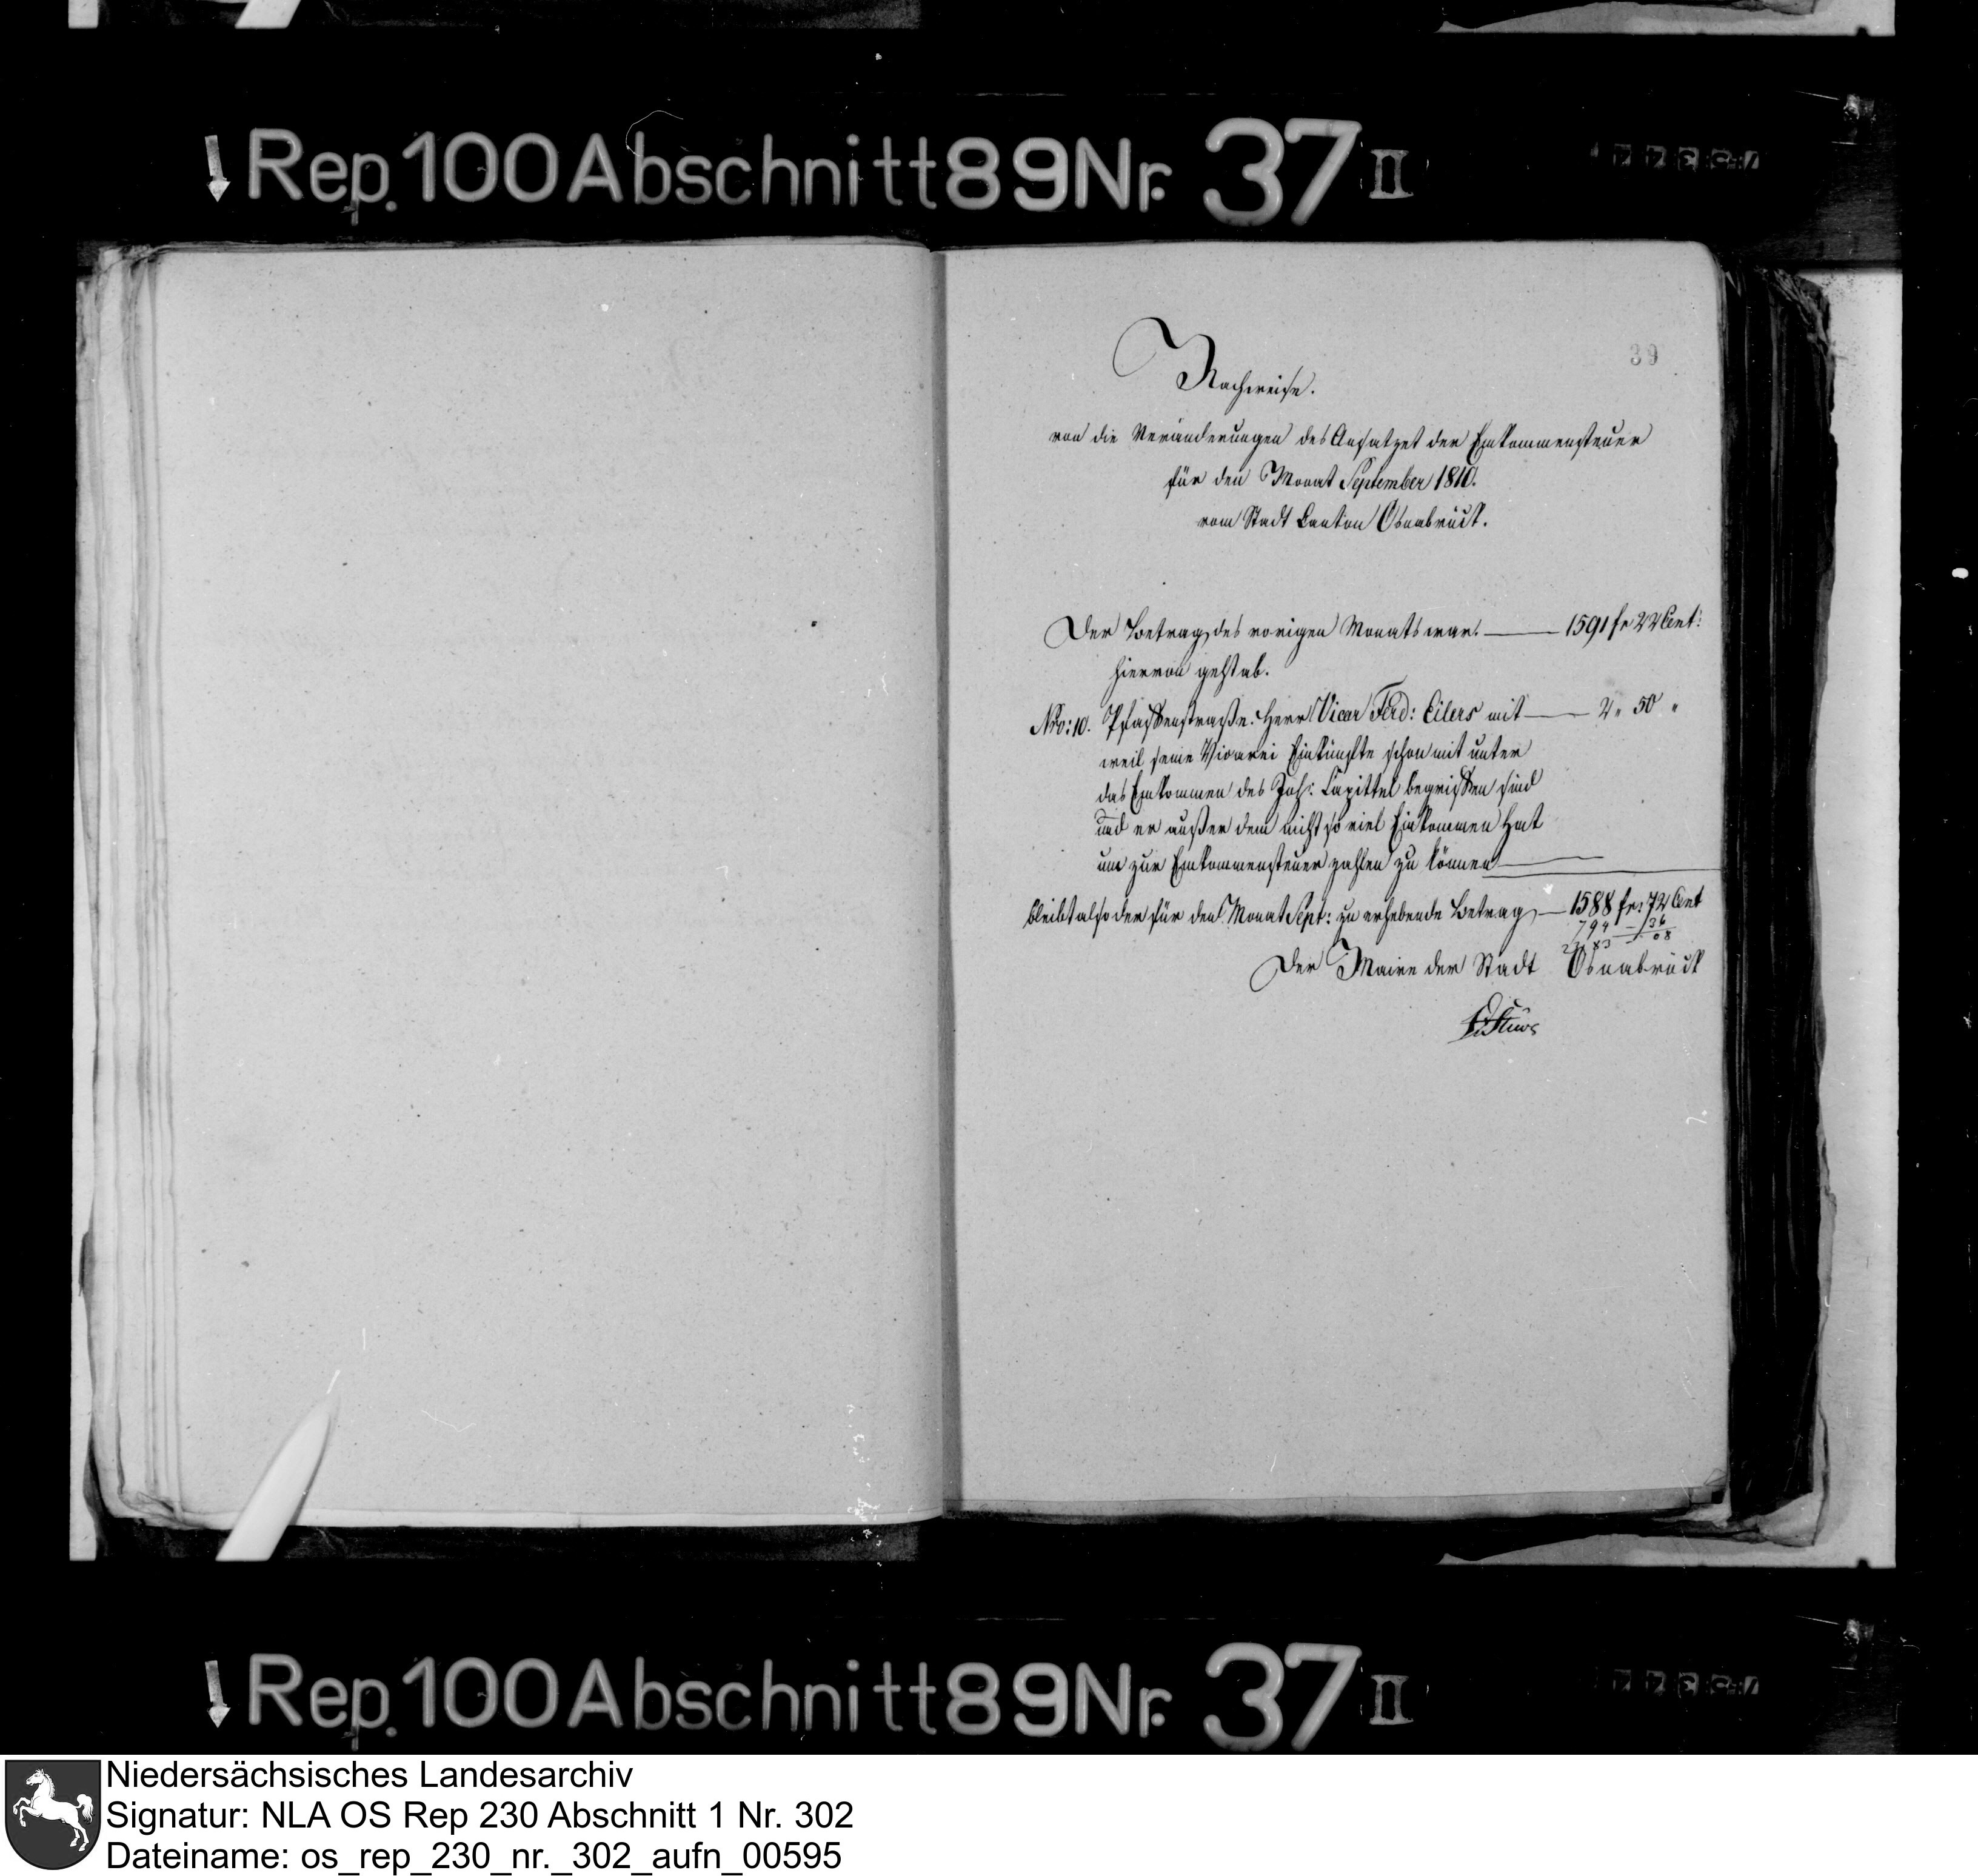 Rep. 100 Abschnitt 89 Nr. 37 II
39
Nachweise.
von die Veränderungen des Ansatzes der Einkommensteuer
für den Monat September 1810.
vom Stadt Canton Osnabrück.
Der Betrag des vorigen Monats war. — 1591 fr 22 Cent:
hiervon geht ab.
Nro: 10. Pfaffenstraße. Herr Vicar Ferd: Eilers mit — 2 „ 50 „
weil seine Vicarei Einkünfte schon mit unter
das Einkommen des Joh: Capittel begriffen sind
und er außer dem nicht so viel Einkommen hat
um zur Einkommensteuer zahlen zu können
bleibt also der für den Monat Sept: zu erhebende Betrag, — 1588 fr: 72 Cent
794 — 36
83 — 08
Der Maire der Stadt Osnabrück
Rep. 100 Abschnitt 89 Nr. 37 II
Niedersächsisches Landesarchiv
Signatur: NLA OS Rep 230 Abschnitt 1 Nr. 302
Dateiname: os_rep_230_nr._302_aufn_00595